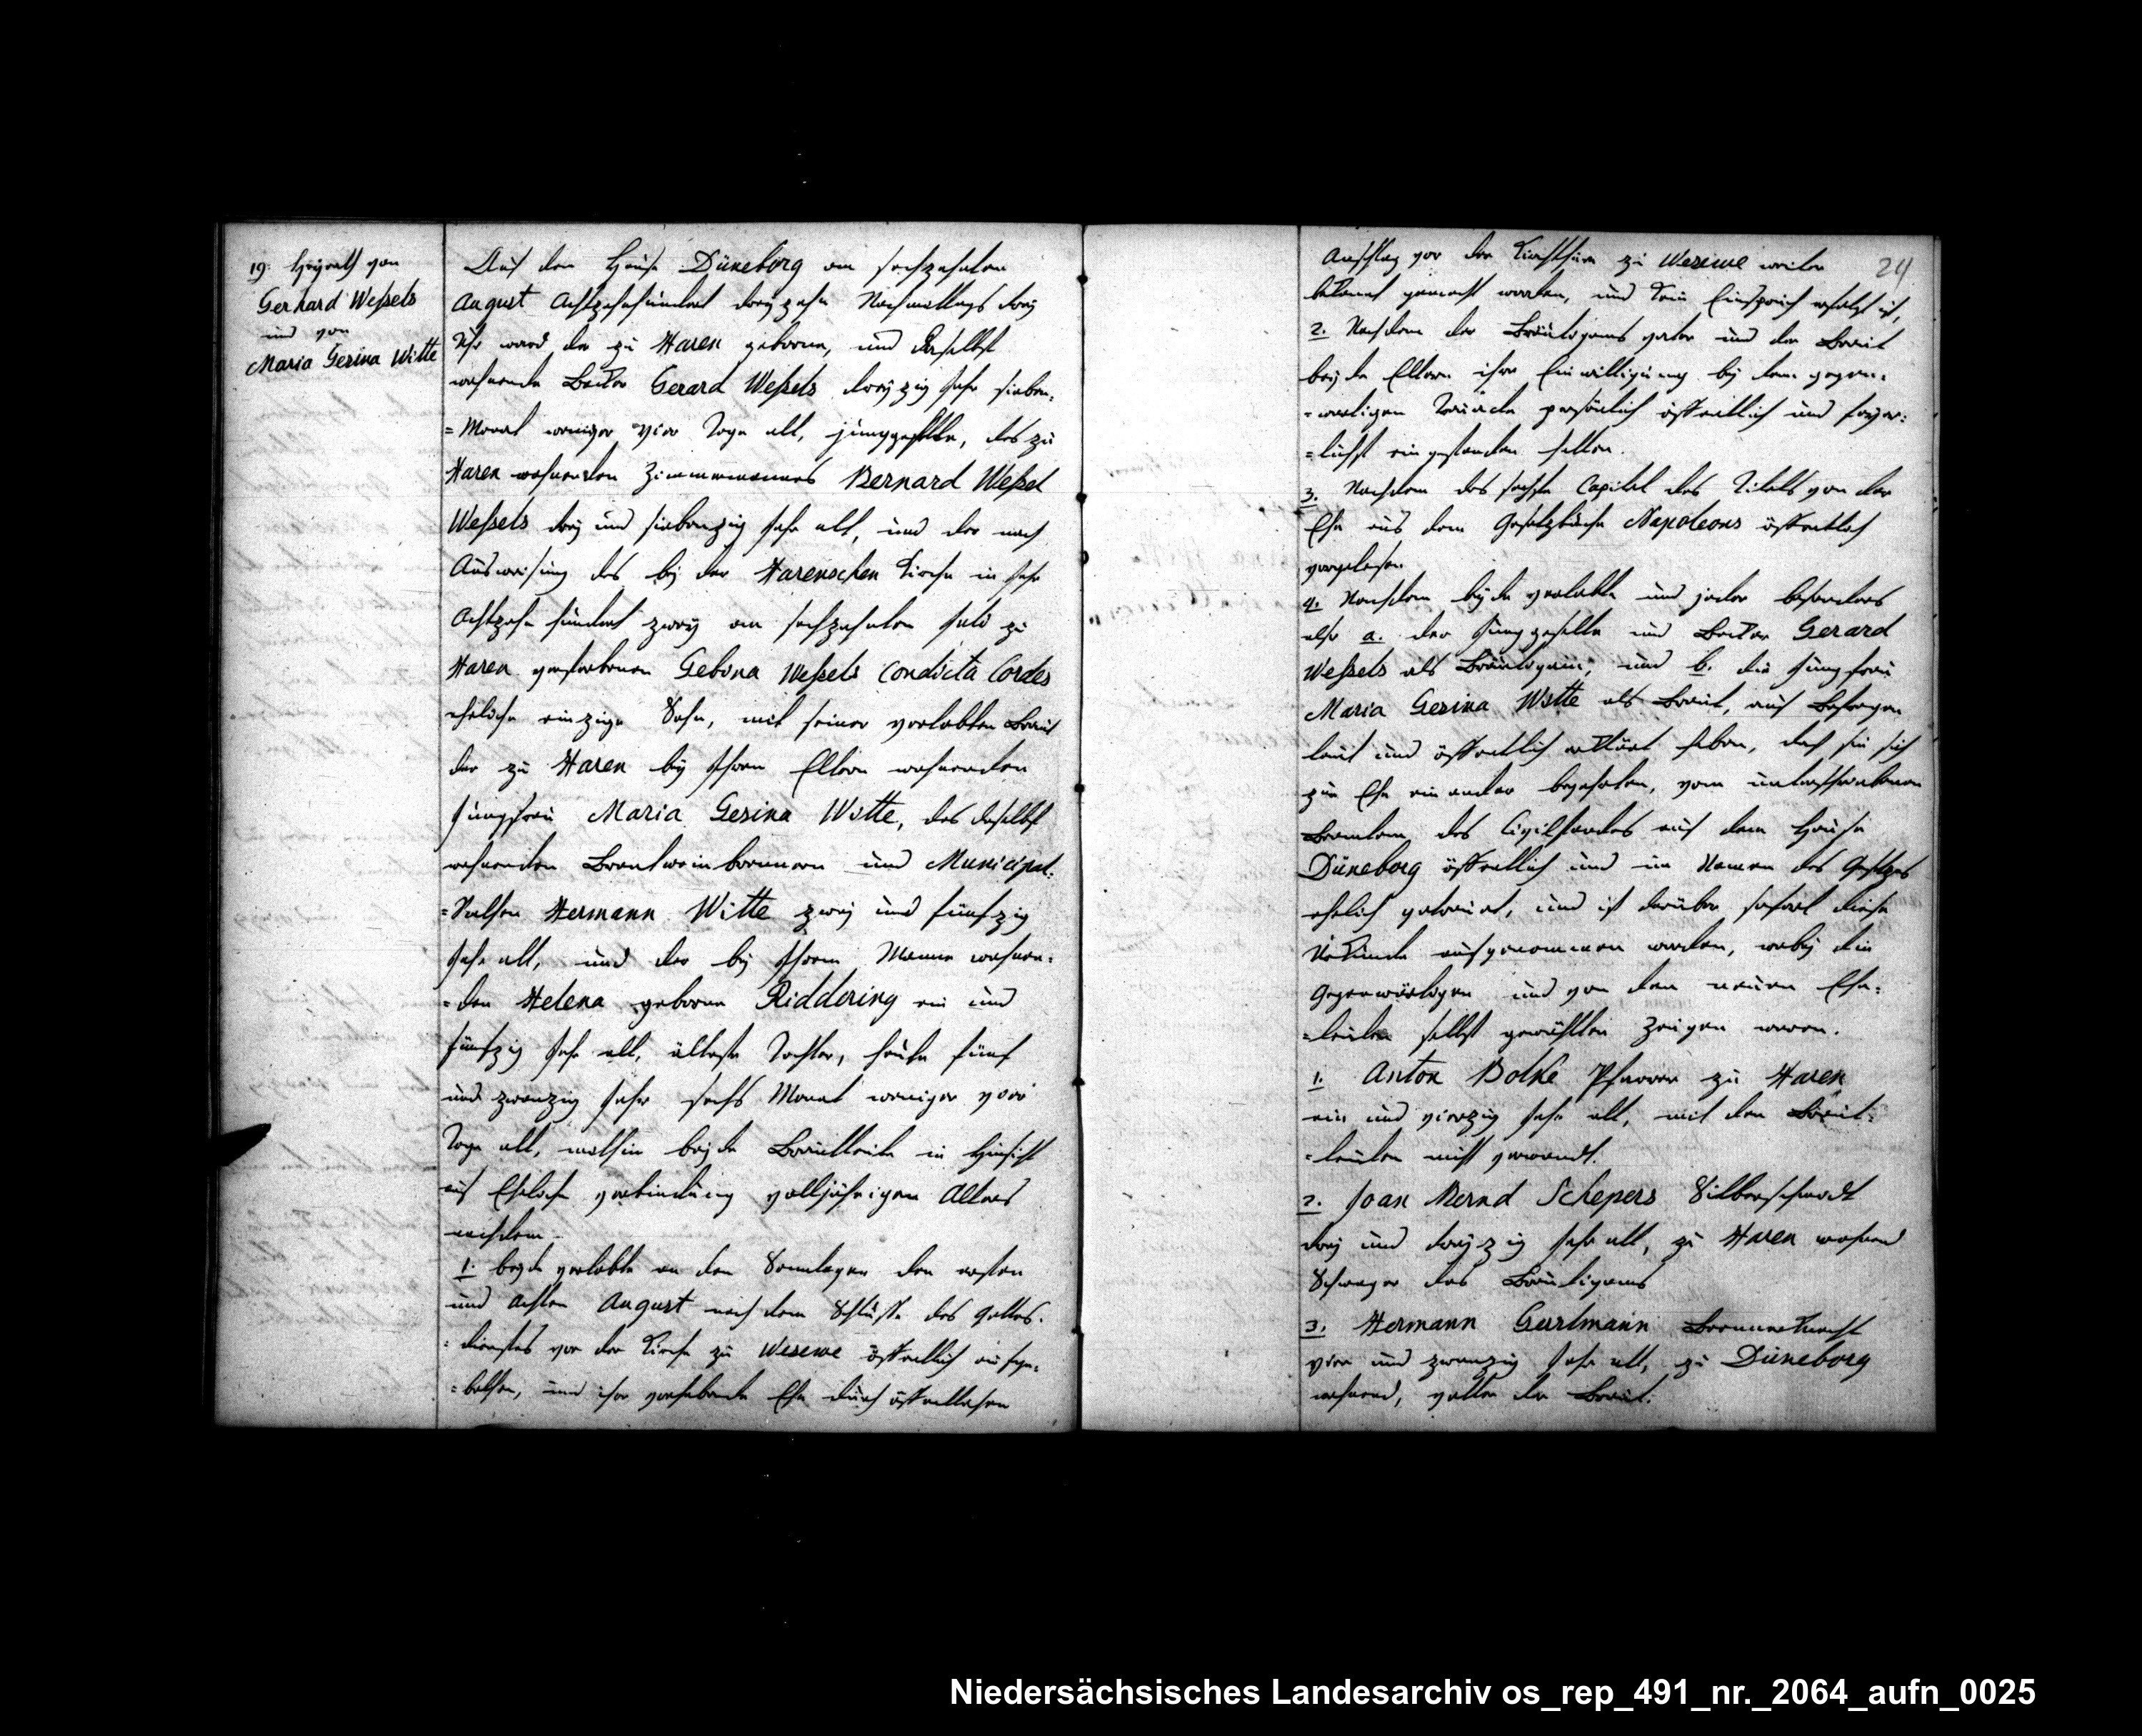 19. Heyrath von
Gerhard Weßels
und von
Maria Gesina Witte
Auf den Hause Düneborg am sechzehnten
August Achtzehnhundert dreyzehn Nachmittags drey
Uhr ward der zu Haren geborne, und daselbst
wohnende Becker Gerard Weßels dreyzig Jahr sieben-
=Monat weniger vier Tage alt, junggeselle, des zu
Haren wohnenden Zimmermannes Bernard Weßel
Weßels drey und siebenzig Jahr alt, und der nach
Ausweisung des bey der Harenschen Kirche im Jahr
Achtzehn hundert zwey am sechzehnten Juli zu
Haren gestorbenen Gebina Weßels Condicta Cordes
eheliche einzige Sohn, mit seiner verlobten Braut
der zu Haren bey Ihren Eltern wohnenden
Jungfrau Maria Gesina Witte, des daselbst
wohnenden Brantweinbrenners und Municipal-
Hermann Witte zwey und fünfzig
Jahr alt, und der bey Ihrem Manne wohnen-
=den Helena geborne Riddering ein und
fünfzig Jahr alt, älteste Tochter, heute fünf
und zwanzig Jahr sechs Monat weniger vier
Tage alt, mithin beyde Brautleute in Hinsicht
auf Eheliche verbindung volljährigen Alters
nachdem
1. beyde verlobte an den Sonntagen den ersten
und achten August nach dem Schluße des Gottes-
=dienstes vor der Kirche zu Wesewe öffentlich aufge-
=bothen, und ihre vorhabende Ehe durch öffentlichen
24
Anschlag vor der Kirchthüre zu Wesewe weiter
bekannt gemacht worden, und kein Einspruch erfolgt ist,
2. Nachdem der Bräutigams vater und der Braut
beyde Eltern ihre Einwilligung bey dem gegen-
=wärtigen persönlich öffentlich und feyer-
=lichst eingestanden hatten.
3. Nachdem das sechste Capitel des Titels von der
Ehe aus dem Gesetzbuche Napoleons öffentlich
vorgelesen
4. Nachdem beyde verlobte und jeder besonders
also a. der Junggeselle und Becker Gerard
Weßels als Bräutigam, und b. die Jungfrau
Maria Gesina Witte als Braut, auf Befragen
laut und öffentlich erklärt haben, daß sie sich
zur Ehe einander begehrten, vom unterschriebenen
Beamten des Civilstandes auf dem Hause
Düneborg öffentlich und im Namen des Gesetzes
ehelich getrauet, und ist darüber sofort diese
Urkunde aufgenommen worden, wobey die
Gegenwärtigen und von den neuen Ehe-
=leuten selbst gewählten Zeugen waren.
1. Anton Bolke Pfarrer zu Haren
ein und vierzig Jahr alt, mit den Braut-
=leuten nicht verwandt.
2. Joan Bernd Schepers Silberschmidt
drey und dreyzig Jahr alt, zu Haren wohnend
Schwager des Bräutigams
3. Hermann Geerlmann Brennerknecht
vier und zwanzig Jahr alt, zu Düneborg
wohnend, vetter der Braut.
Niedersächsisches Landesarchiv os_rep_491_nr._2064_aufn_0025